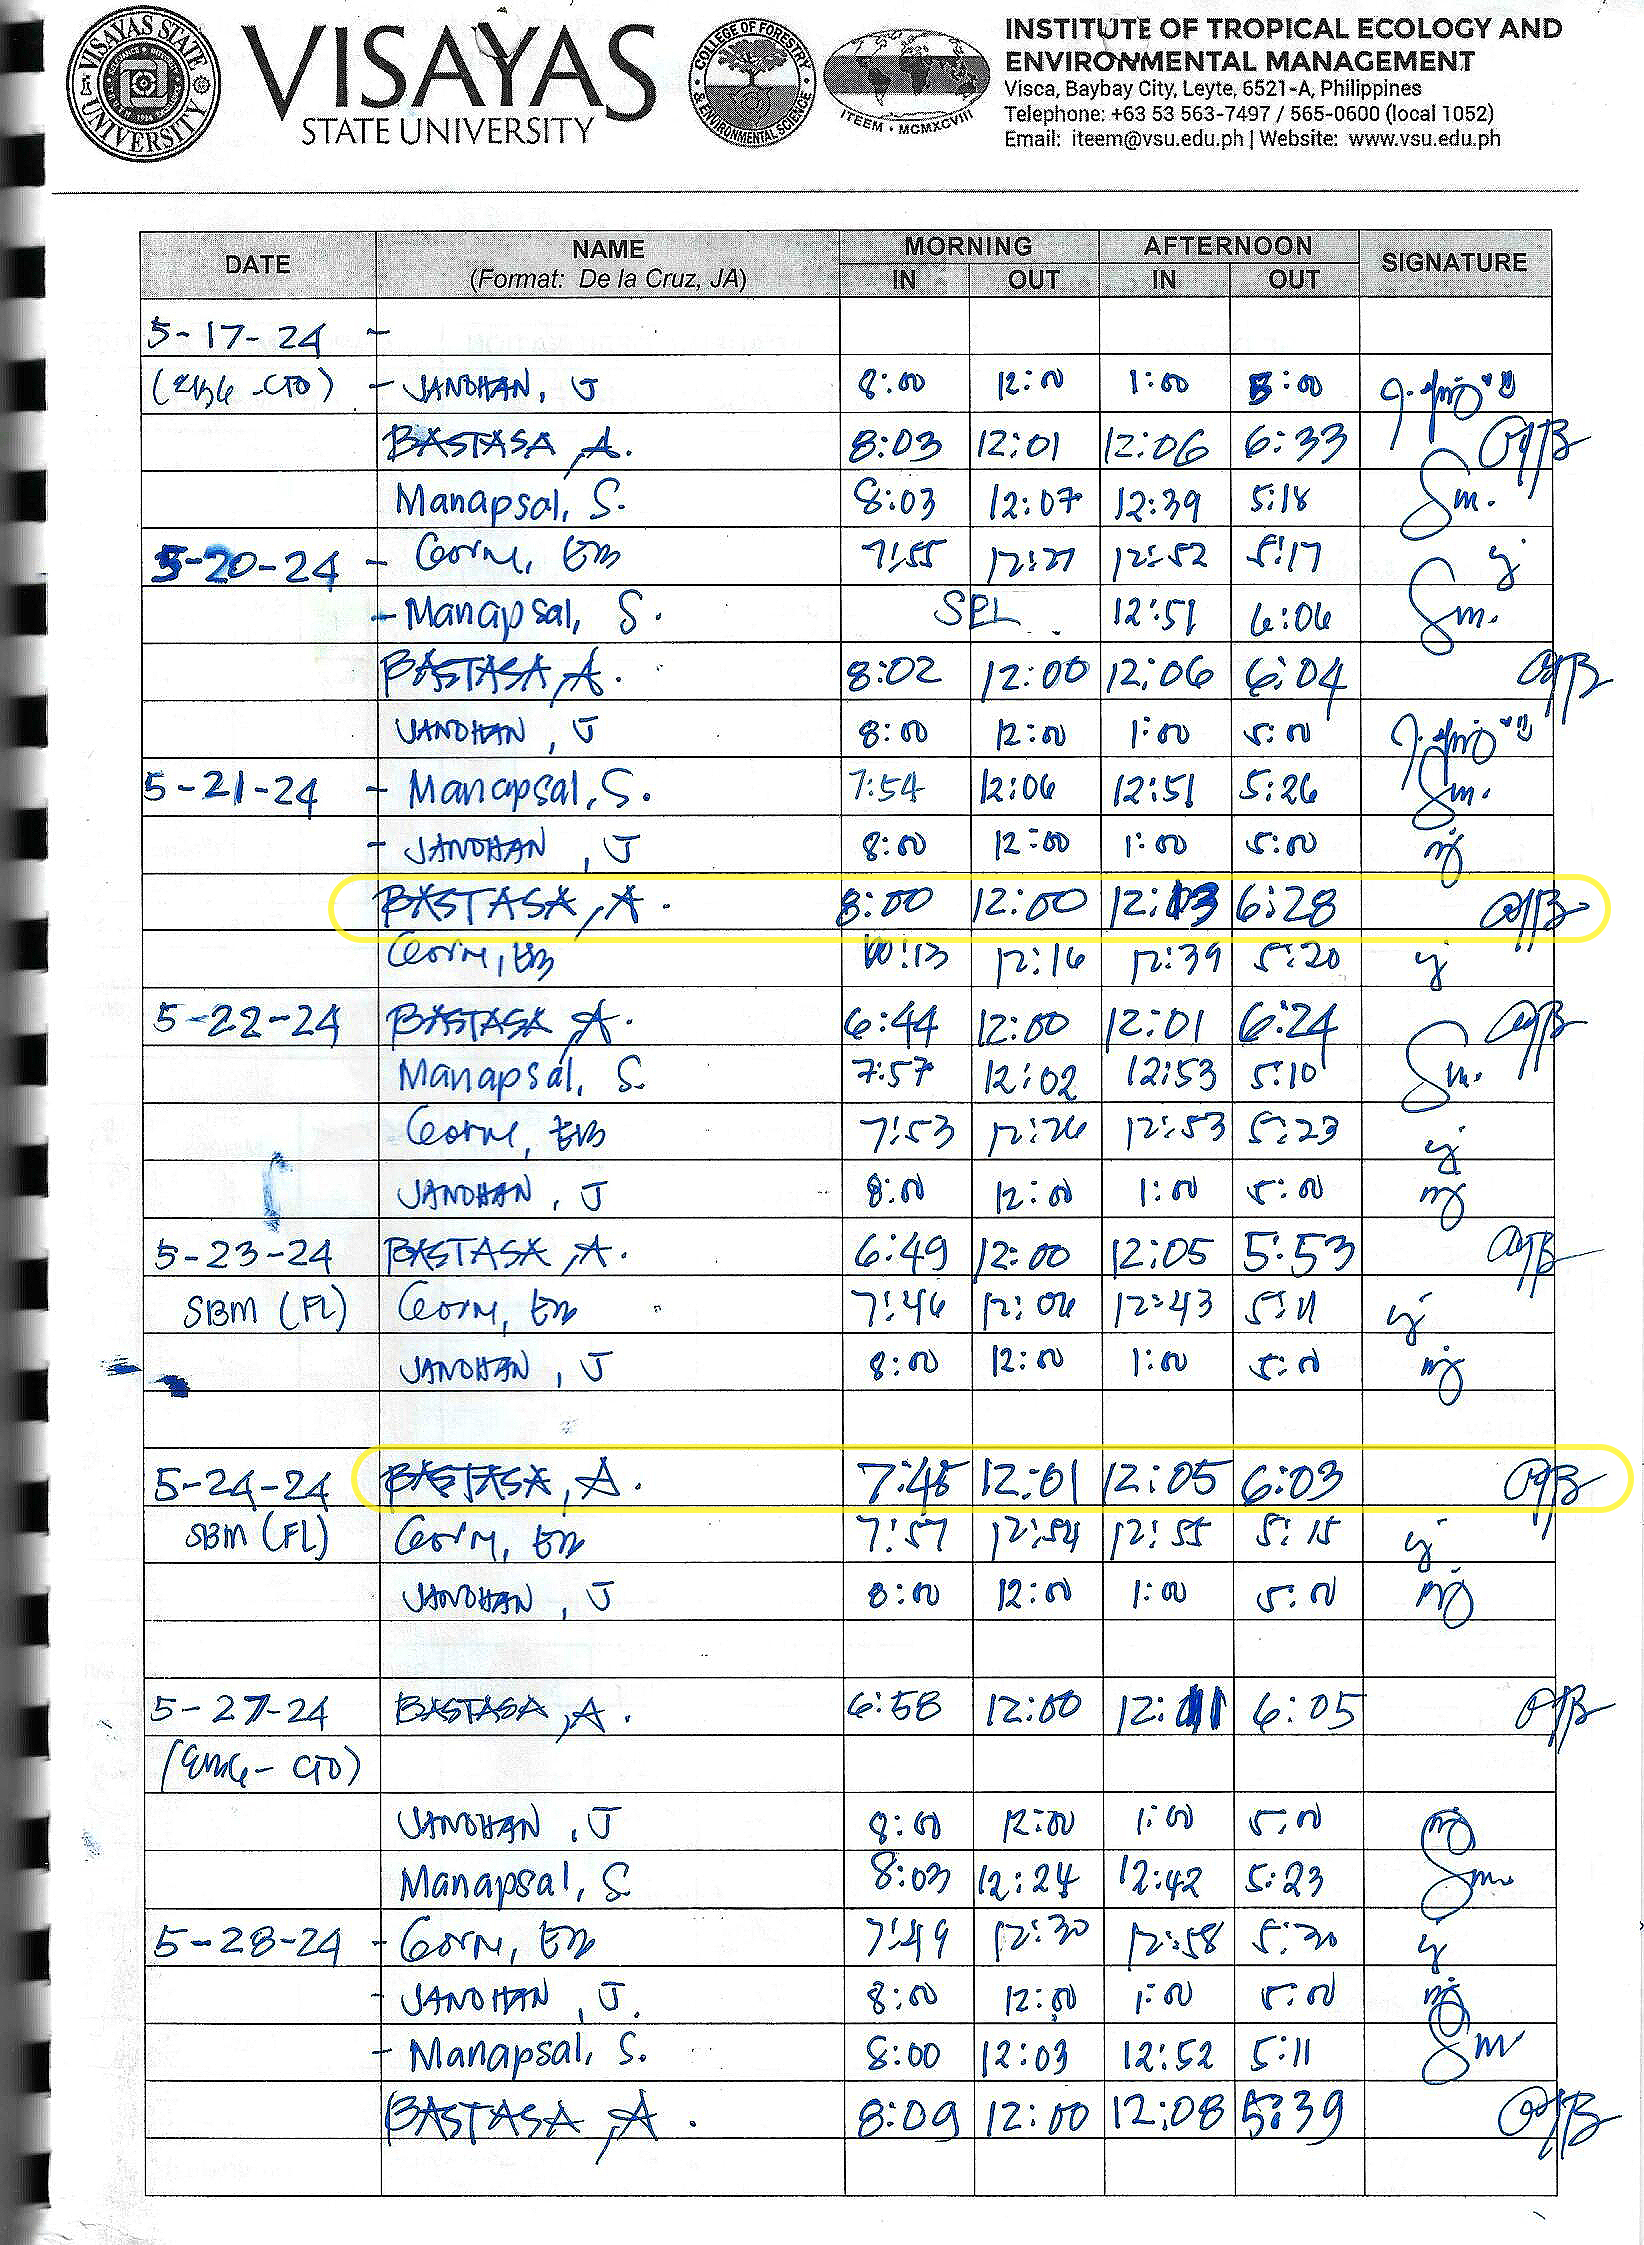 VISAYAS STATE UNIVERSITY
VISAYAS
STATE UNIVERSITY
COLLEGE OF FORESTRY & ENVIRONMENTAL SCIENCE
ITEEM • MCMXCVIII
INSTITUTE OF TROPICAL ECOLOGY AND
ENVIRONMENTAL MANAGEMENT
Visca, Baybay City, Leyte, 6521-A, Philippines
Telephone: +63 53 563-7497 / 565-0600 (local 1052)
Email: iteem@vsu.edu.ph | Website: www.vsu.edu.ph
DATE NAME MORNING AFTERNOON SIGNATURE
(Format: De la Cruz, JA) IN OUT IN OUT
5-17-24 -
- JANDHAN, J 8:00 12:00 1:00 5:00
BASTASA, A. 8:03 12:01 12:06 6:33
Manapsal, S. 8:03 12:07 12:39 5:18 Sm.
5-20-24 - 7:55 12:27 12:52 5:17
- Manapsal, S. SPL 12:51 6:06 Sm.
BASTASA, A. 8:02 12:00 12:06 6:04
JANDHAN, J 8:00 12:00 1:00 5:00
5-21-24 - Manapsal, S. 7:54 12:06 12:51 5:26 Sm.
- JANDHAN, J 8:00 12:00 1:00 5:00
BASTASA, A. 8:00 12:00 12:13 6:28
10:13 12:16 12:39 5:20
5-22-24 BASTASA, A. 6:44 12:00 12:01 6:24
Manapsal, S. 7:57 12:02 12:53 5:10 Sm.
7:53 12:26 12:53 5:23
JANDHAN, J 8:00 12:00 1:00 5:00
5-23-24 BASTASA, A. 6:49 12:00 12:05 5:53
SBM (FL) 7:46 12:06 12:43 5:11
JANDHAN, J 8:00 12:00 1:00 5:00
5-24-24 BASTASA, A. 7:45 12:01 12:05 6:03
SBM (FL) 7:57 12:54 12:55 5:15
JANDHAN, J 8:00 12:00 1:00 5:00
5-27-24 BASTASA, A. 6:58 12:00 12:11 6:05
JANDHAN, J 8:00 12:00 1:00 5:00
Manapsal, S 8:03 12:24 12:42 5:23 Sm.
5-28-24 - 7:49 12:30 12:58 5:30
- JANDHAN, J. 8:00 12:00 1:00 5:00
- Manapsal, S. 8:00 12:03 12:52 5:11 Sm
BASTASA, A. 8:09 12:00 12:08 5:39